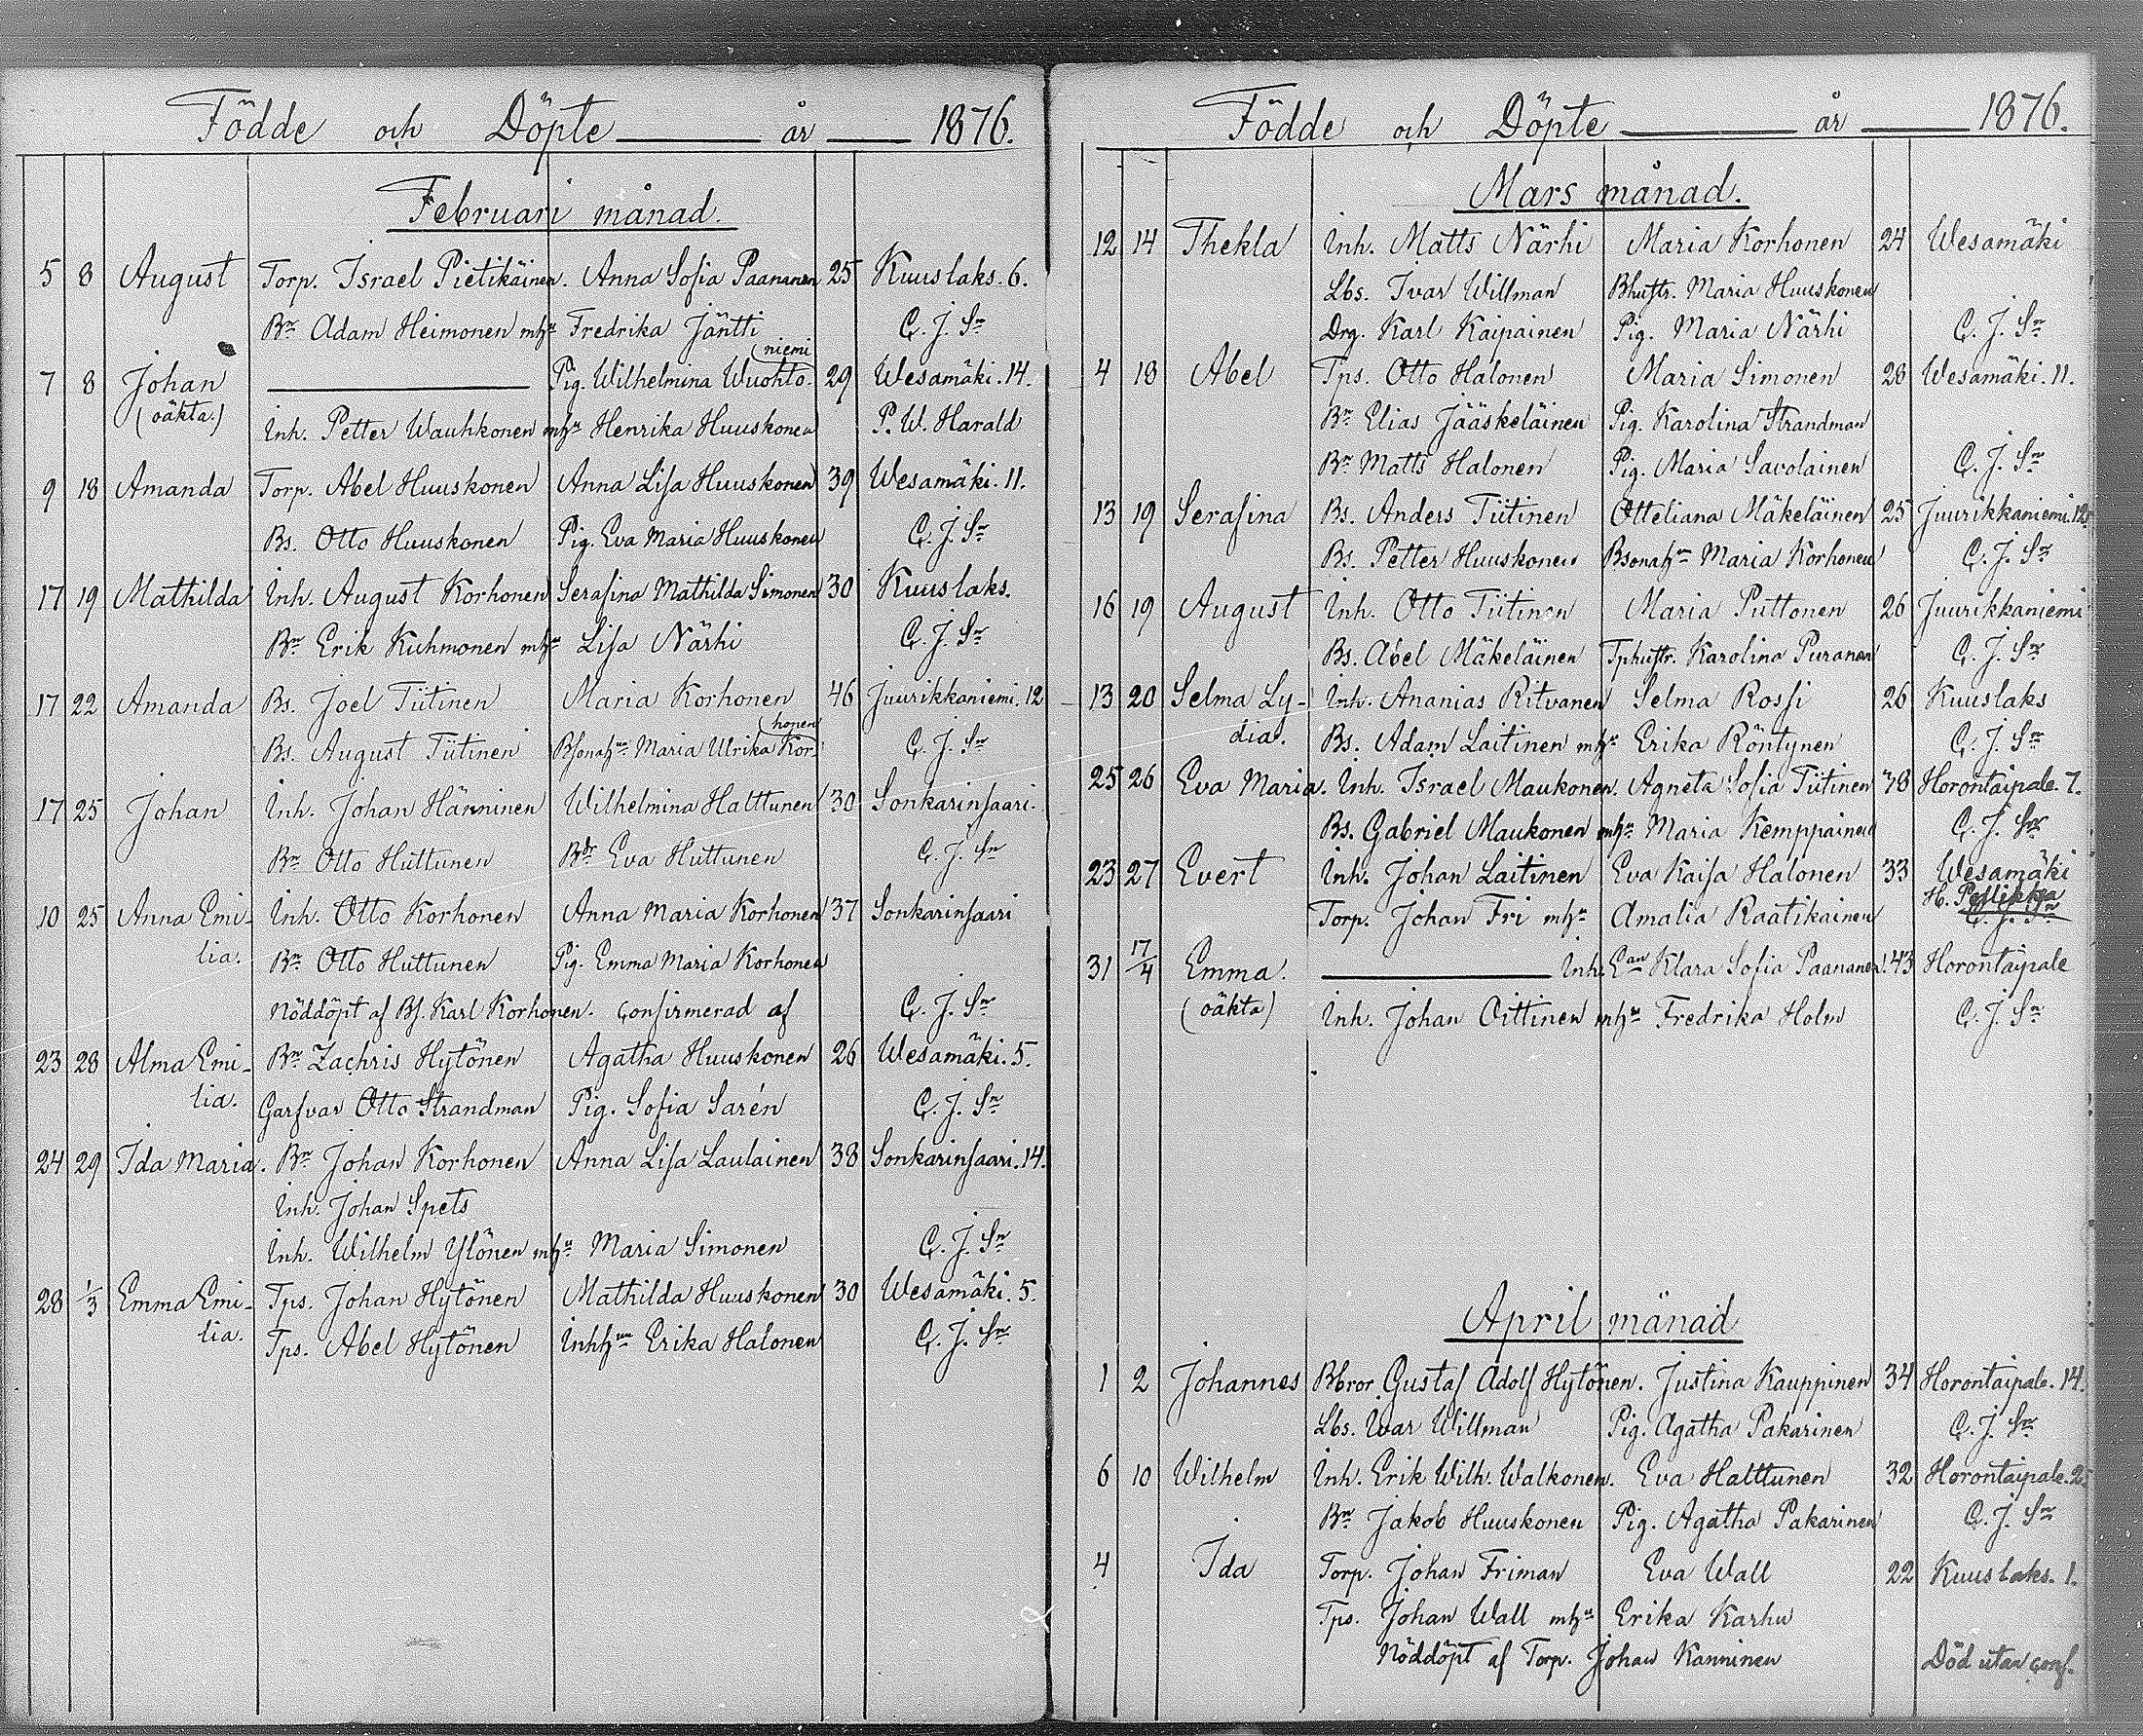 Födde och Döpte år 1876.
Februari månad.
5 8 August Torp. Israel Pietikäinen. Anna Sofia Paananen 25 Kuuslaks. 6.
Bn Adam Heimonen mhu Fredrika Jäntti C. J. Sn
niemi
7 8 Johan Pig. Wilhelmina Wuohto- 29 Wesamäki. 14.
(oäkta:) Inh. Petter Wauhkonen mhu Henrika Huuskonen P. W. Harald
9 18 Amanda Torp. Abel Huuskonen Anna Lisa Huuskonen 39 Wesamäki. 11.
Bs. Otto Huuskonen Pig. Eva Maria Huuskonen C. J. Sn
17 19 Mathilda Inh. August Korhonen Serafina Mathilda Simonen 30 Kuuslaks.
Bn Erik Kuhmonen mhu Lisa Närhi C. J. Sn
17 22 Amanda Bs. Joel Tiitinen Maria Korhonen 46 Juurikkaniemi. 12
honen
Bs. August Tiitinen Bsonahu Maria Ulrika Kor- C. J. Sn
17 25 Johan Inh. Johan Hänninen Wilhelmina Halttunen 30 Sonkarinsaari.
Bn Otto Huttunen Bdr Eva Huttunen C. J. Sn
10 25 Anna Emi- Inh. Otto Korhonen Anna Maria Korhonen 37 Sonkarinsaari
lia. Bn Otto Huttunen Pig. Emma Maria Korhonen
Nöddöpt af Bs. Karl Korhonen. Confirmerad af C. J. Sn
23 28 Alma Emi- Bn Zachris Hytönen Agatha Huuskonen 26 Wesamäki. 5.
lia. Garfvar Otto Strandman Pig. Sofia Sarén C. J. Sn
24 29 Ida Maria. Bn Johan Korhonen Anna Lisa Laulainen 38 Sonkarinsaari. 14.
Inh. Johan Spets
Inh. Wilhelm Ylönen mhu Maria Simonen C. J. Sn
28 1/3 Emma Emi- Tps. Johan Hytönen Mathilda Huuskonen 30 Wesamäki. 5.
lia. Tps. Abel Hytönen Inhhu Erika Halonen C. J. Sn
Födde och Döpte år 1876.
Mars månad.
12 14 Thekla Inh. Matts Närhi Maria Korhonen 24 Wesamäki
Lbs. Ivar Willman Bhustr. Maria Huuskonen
Drg. Karl Kaipainen Pig. Maria Närhi C. J. Sn
4 18 Abel Tps. Otto Halonen Maria Simonen 28 Wesamäki. 11.
Bn Elias Jääskeläinen Pig. Karolina Strandman
Bn Matts Halonen Pig. Maria Savolainen C. J. Sn
13 19 Serafina Bs. Anders Tiitinen Otteliana Mäkeläinen 25 Juurikkaniemi. 12
Bs. Petter Huuskonen Bsonahu Maria Korhonen C. J. Sn
16 19 August Inh. Otto Tiitinen Maria Puttonen 26 Juurikkaniemi
Bs. Abel Mäkeläinen Tphustr. Karolina Puranen C. J. Sn
13 20 Selma Ly- Inh. Ananias Ritvanen Selma Rossi 26 Kuuslaks
dia. Bs. Adam Laitinen mhu Erika Röntynen C. J. Sn
25 26 Eva Maria. Inh. Israel Maukonen. Agneta Sofia Tiitinen 38 Horontaipale. 7.
Bs. Gabriel Maukonen mhu Maria Kemppainen C. J. Sn
23 27 Evert Inh. Johan Laitinen Eva Kaisa Halonen 33 Wesamäki
Torp. Johan Fri mhu Amalia Raatikainen H. Pellikka
C. J. Sn
31 17/4 Emma. Inh. Ean Klara Sofia Paananen. 43 Horontaipale
(oäkta) Inh. Johan Oittinen mhu Fredrika Holm C. J. Sn
April månad
1 2 Johannes Bbror Gustaf Adolf Hytönen. Justina Kauppinen 34 Horontaipale. 14.
Lbs. Ivar Willman Pig. Agatha Pakarinen C. J. Sn
6 10 Wilhelm Inh. Erik Wilh. Walkonen. Eva Halttunen 32 Horontaipale. 2
Bn Jakob Huuskonen Pig. Agatha Pakarinen C. J. Sn
4 Ida Torp. Johan Friman Eva Wall 22 Kuuslaks. 1.
Tps. Johan Wall mhu Erika Karhu
Nöddöpt af Torp. Johan Kanninen Död utan conf.